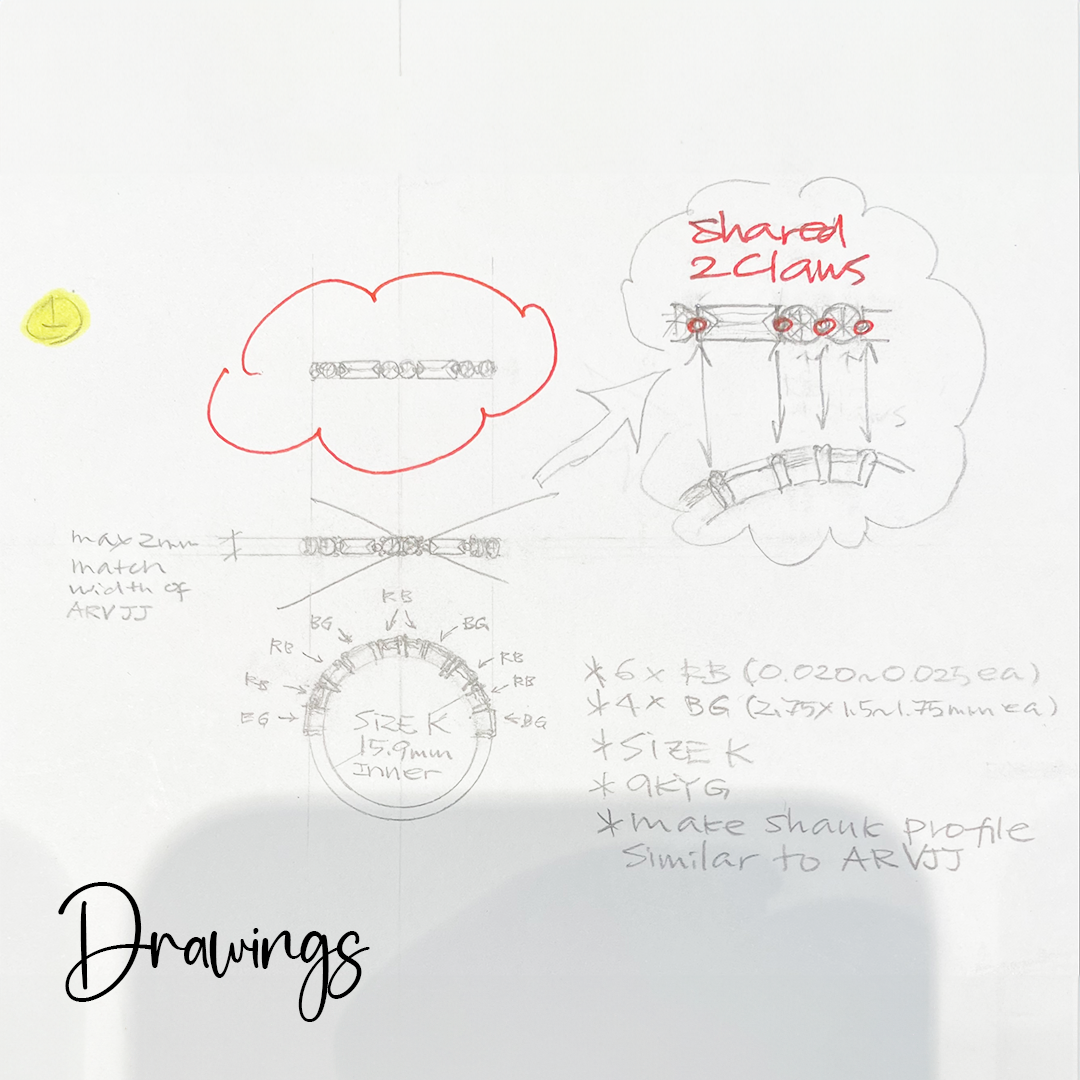 1
shared
2 Claws
max 2mm
match
width of
ARVJJ
RB
BG
BG
RB
RB
RB
RB
BG
BG
SIZE K
15.9mm
Inner
*6 x RB (0.020~0.025ea)
*4 x BG (2.75x1.5~1.75mm ea)
*SIZE K
*9KYG
*make shank profile
similar to ARVJJ
Drawings